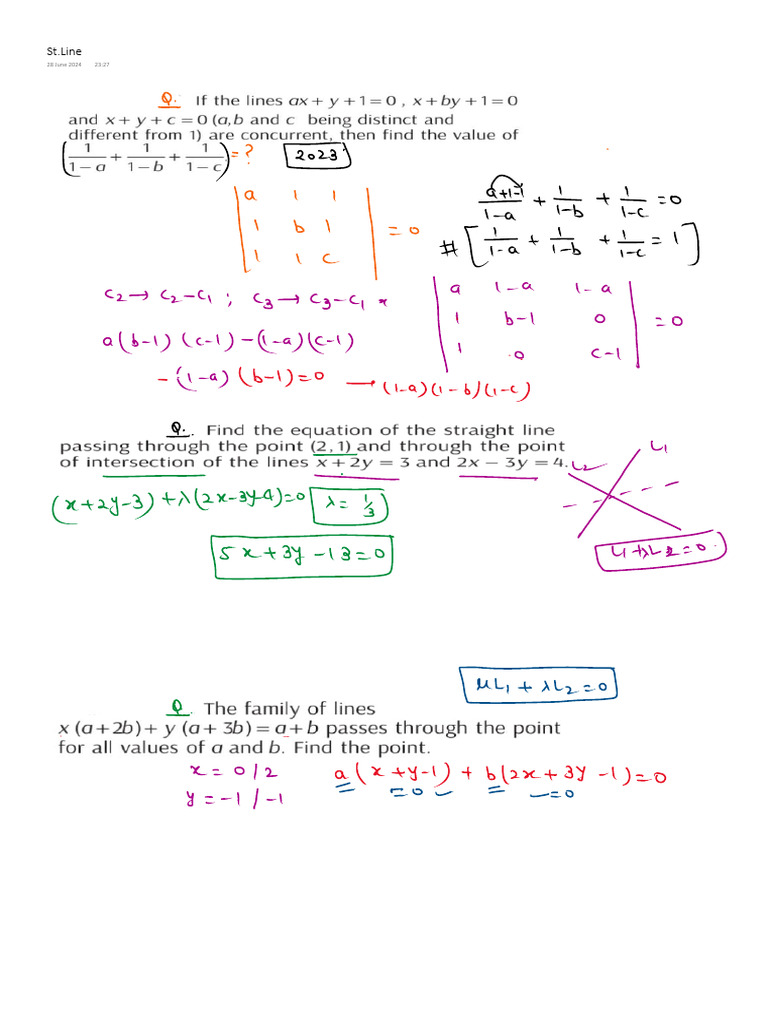 St.Line
28 June 2024 23:27
Q. If the lines ax + y + 1 = 0 , x + by + 1 = 0
and x + y + c = 0 (a, b and c being distinct and
different from 1) are concurrent, then find the value of
(1/(1-a) + 1/(1-b) + 1/(1-c)) = ? 2023
| a 1 1 |
| 1 b 1 | = 0
| 1 1 c |
(a+1-1)/(1-a) + 1/(1-b) + 1/(1-c) = 0
# [ 1/(1-a) + 1/(1-b) + 1/(1-c) = 1 ]
C2 → C2 - C1 ; C3 → C3 - C1 *
| a 1-a 1-a |
| 1 b-1 0 | = 0
| 1 0 c-1 |
a(b-1)(c-1) - (1-a)(c-1)
- (1-a)(b-1) = 0 → (1-a)(1-b)(1-c)
Q. Find the equation of the straight line
passing through the point (2, 1) and through the point
of intersection of the lines x + 2y = 3 and 2x − 3y = 4.
L1
L2
(x+2y-3) + λ(2x-3y-4) = 0 λ = 1/3
5x + 3y - 13 = 0
L1 + λL2 = 0.
μL1 + λL2 = 0
Q. The family of lines
x (a + 2b) + y (a + 3b) = a + b passes through the point
for all values of a and b. Find the point.
x = 0/2 a(x+y-1) + b(2x+3y-1) = 0
y = -1/-1 = 0 = 0